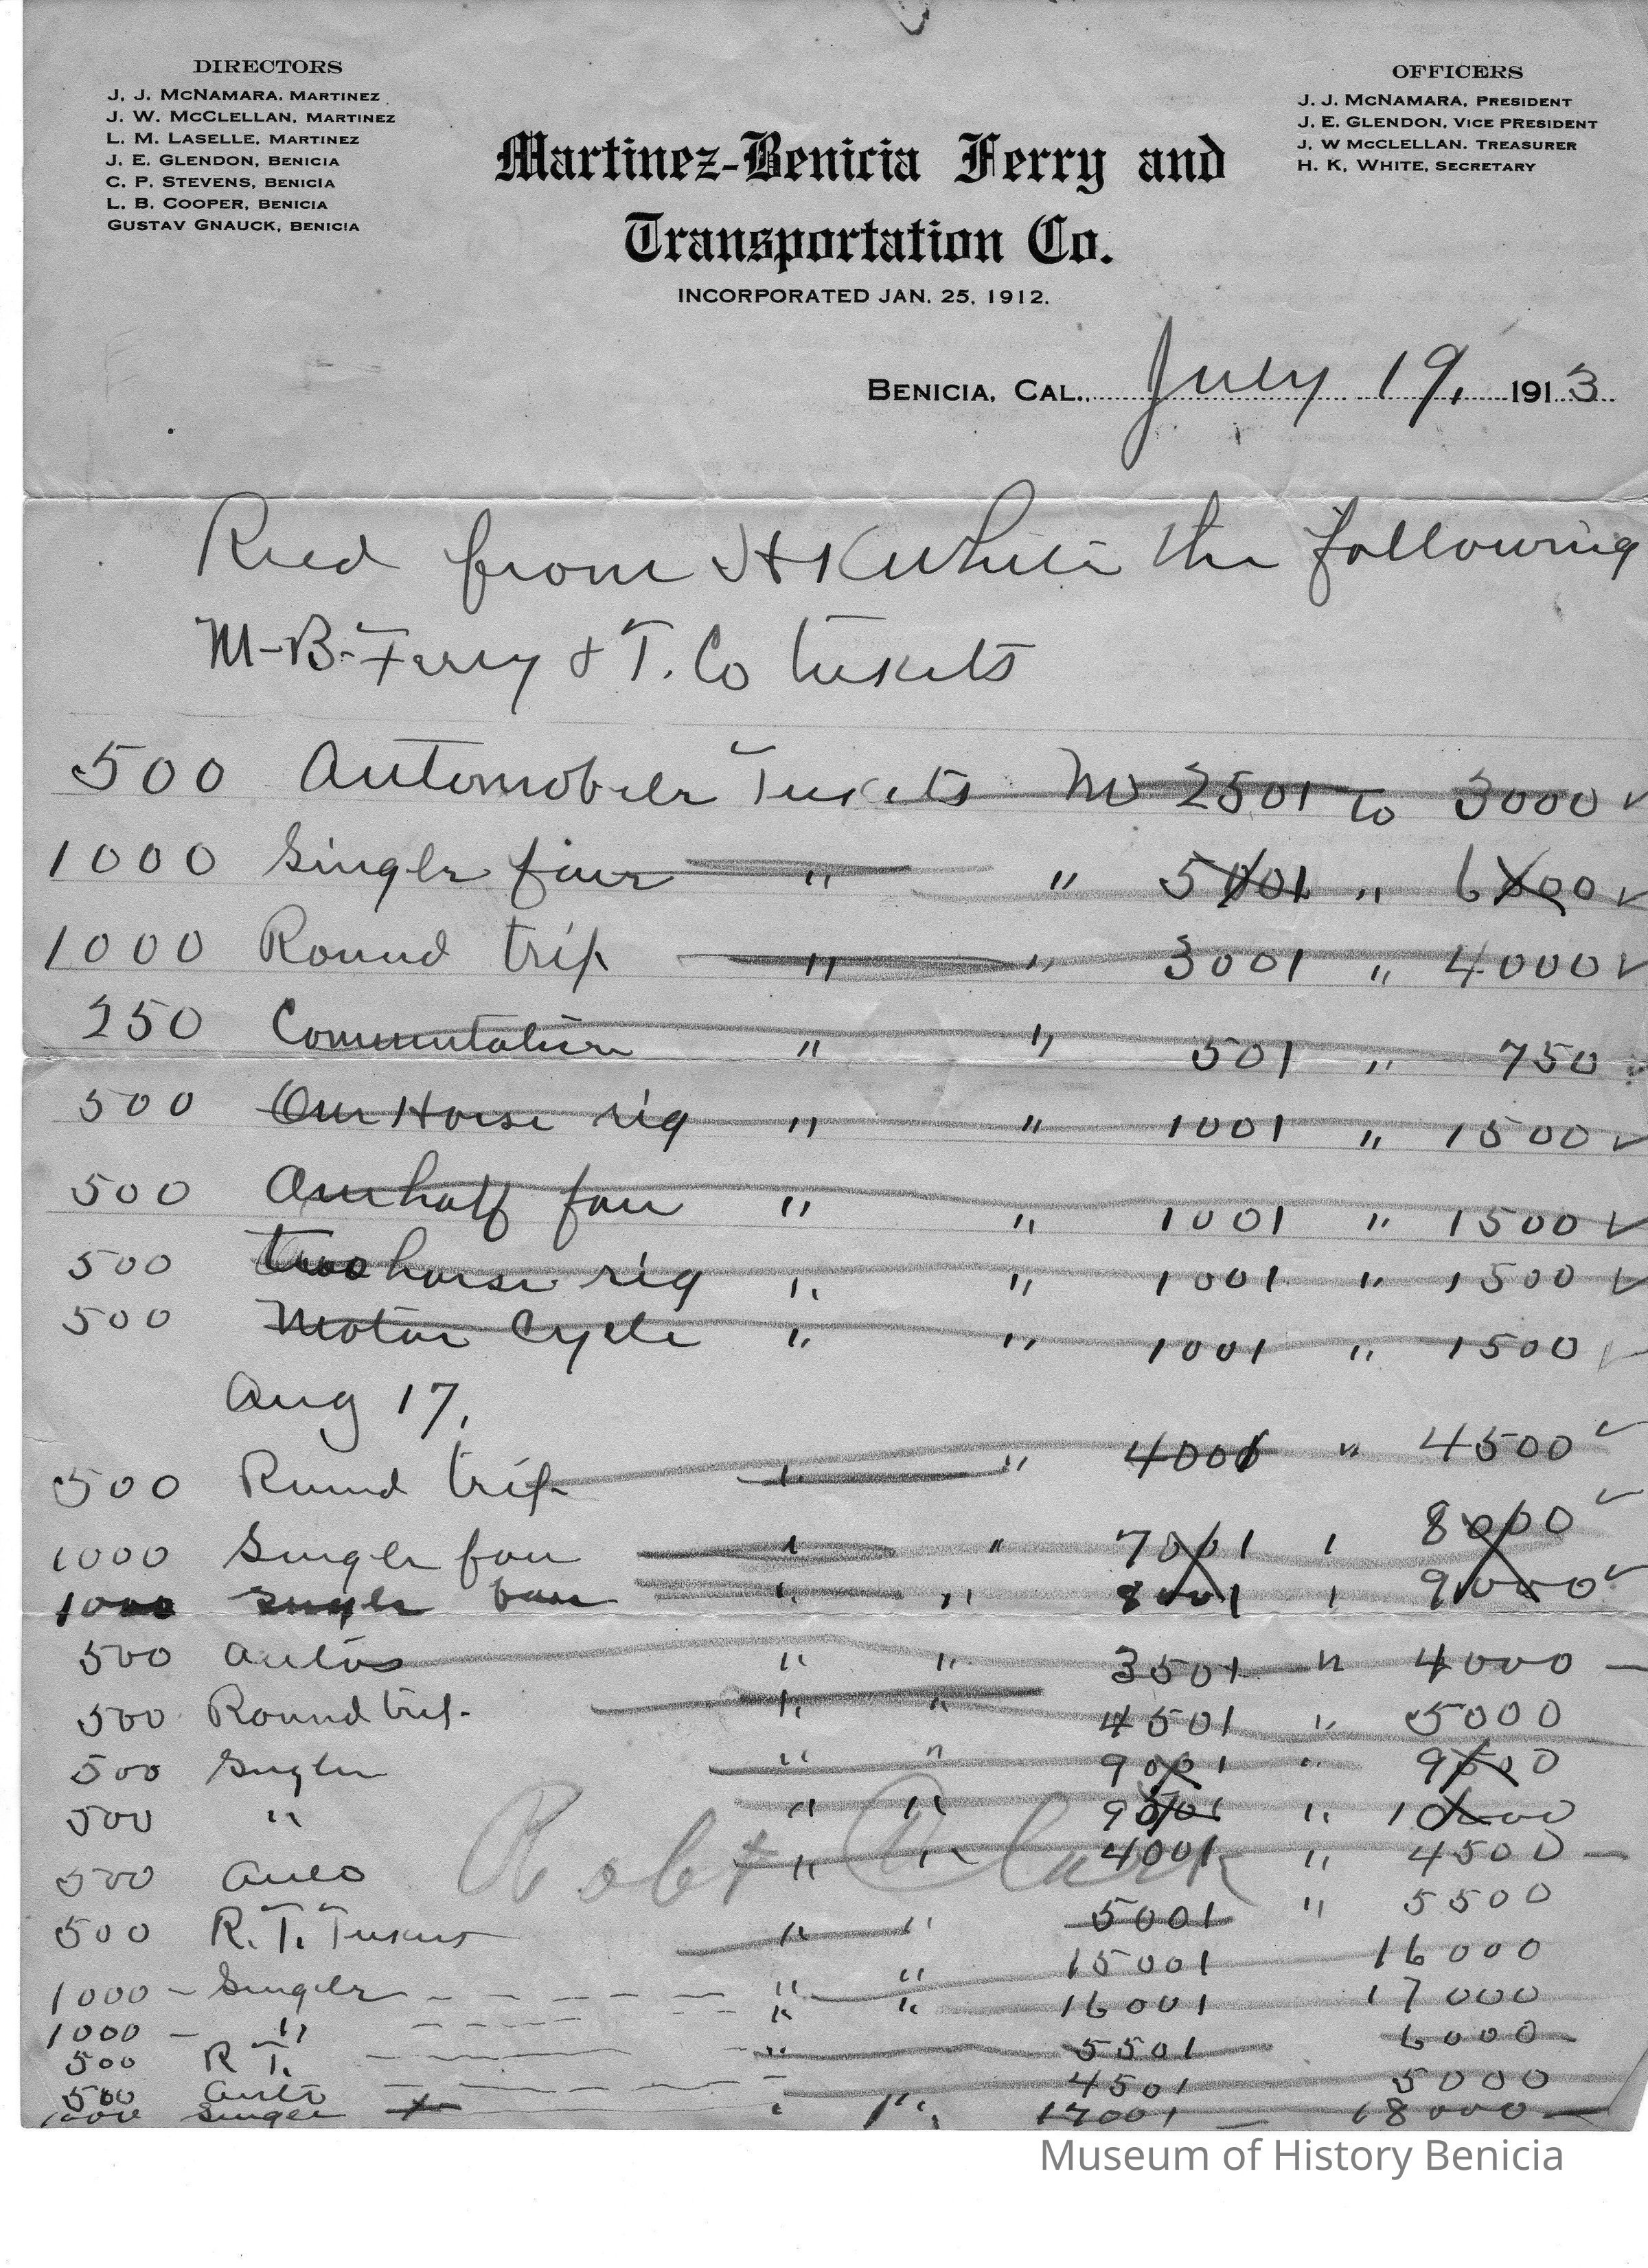 DIRECTORS
J. J. McNAMARA, MARTINEZ
J. W. McCLELLAN, MARTINEZ
L. M. LASELLE, MARTINEZ
J. E. GLENDON, BENICIA
C. P. STEVENS, BENICIA
L. B. COOPER, BENICIA
GUSTAV GNAUCK, BENICIA
OFFICERS
J. J. McNAMARA, PRESIDENT
J. E. GLENDON, VICE PRESIDENT
J. W McCLELLAN. TREASURER
H. K. WHITE, SECRETARY
Martinez-Benicia Ferry and
Transportation Co.
INCORPORATED JAN. 25, 1912.
BENICIA, CAL., July 19, 1913
Recd from H K White the following
M-B-Ferry & T. Co tickets
500 Automobile Tickets No 2501 to 3000 ✓
1000 Single fare " " 5001 " 6000 ✓
1000 Round trip " " 3001 " 4000 ✓
250 Commutation " " 501 " 750
500 One Horse rig " " 1001 " 1500 ✓
500 One half fare " " 1001 " 1500 ✓
500 two horse rig " " 1001 " 1500 ✓
500 Motor Cycle " " 1001 " 1500 ✓
Aug 17,
500 Round trip " " 4001 " 4500 ✓
1000 Single fare " " 7001 " 8000 ✓
1000 Single fare " " 8001 " 9000 ✓
500 Autos " " 3501 " 4000 –
500 Round trip " " 4501 " 5000
500 Single " " 9001 " 9500
500 " " " 9501 " 10000
500 Auto " " 4001 " 4500 –
Robt Clark
500 R. T. Tickets " " 5001 " 5500
1000 – Single " " 15001 16000
1000 – " " " 16001 17000
500 R T. " 5501 6000
500 Auto 4501 5000
1000 Single " " 17001 – 18000
Museum of History Benicia